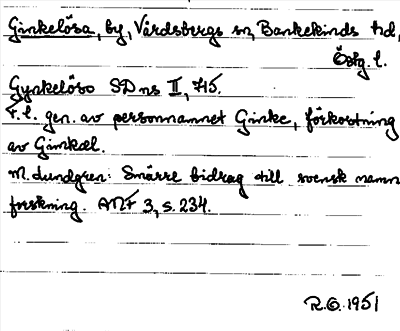 Ginkelösa, by, Vårdsbergs sn, Bankekinds hd,
Östg. l.
Gynkeløso SD ns II, 715.
F.l. gen. av personnamnet Ginke, förkortning
av Ginkæl.
M. Lundgren: Smärre bidrag till svensk namn
forskning. ANF 3, s. 234.
R.O. 1951